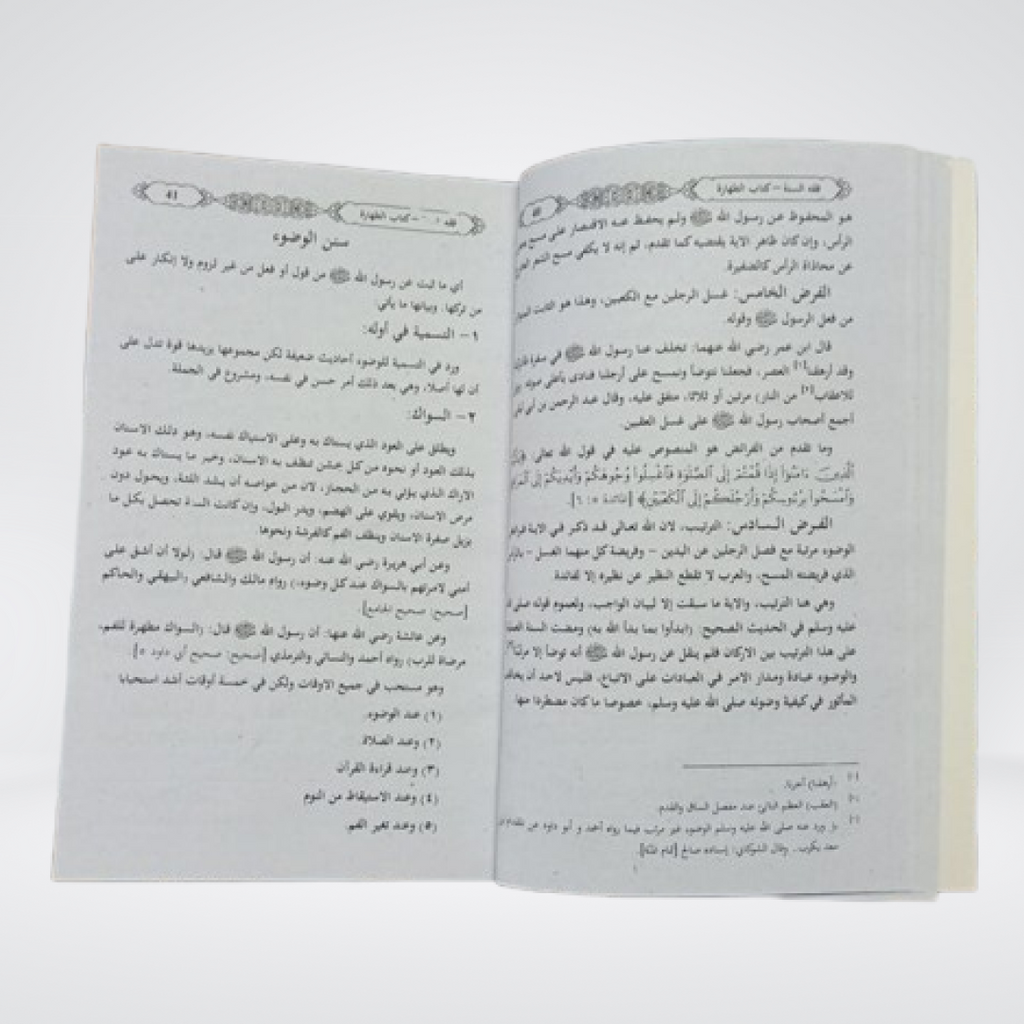 فقه السنة – كتاب الطهارة
هو المحفوظ عن رسول الله ﷺ ولم يحفظ عنه الاقتصار على مسح بعض
الرأس، وإن كان ظاهر الآية يقتضيه كما تقدم، ثم إنه لا يكفي مسح الشعر
عن محاذاة الرأس كالضفيرة.
الفرض الخامس: غسل الرجلين مع الكعبين، وهذا هو الثابت
من فعل الرسول ﷺ وقوله.
قال ابن عمر رضي الله عنهما: تخلف عنا رسول الله ﷺ في سفرة
وقد أرهقنا[١] العصر، فجعلنا نتوضأ ونمسح على أرجلنا فنادى بأعلى صوته
للاعقاب[٢] من النار) مرتين أو ثلاثا، متفق عليه، وقال عبد الرحمن بن أبي
أجمع أصحاب رسول الله ﷺ على غسل العقبين.
وما تقدم من الفرائض هو المنصوص عليه في قول الله تعالى:
ٱلَّذِينَ ءَامَنُوٓا۟ إِذَا قُمْتُمْ إِلَى ٱلصَّلَوٰةِ فَٱغْسِلُوا۟ وُجُوهَكُمْ وَأَيْدِيَكُمْ إِلَى
وَٱمْسَحُوا۟ بِرُءُوسِكُمْ وَأَرْجُلَكُمْ إِلَى ٱلْكَعْبَيْنِ﴾ [المائدة ٥: ٦].
الفرض السادس: الترتيب، لان الله تعالى قد ذكر في الاية
الوضوء مرتبة مع فصل الرجلين عن اليدين – وفريضة كل منهما الغسل –
الذي فريضته المسح، والعرب لا تقطع النظير عن نظيره إلا لفائدة.
وهي هنا الترتيب، والاية ما سيقت إلا لبيان الواجب، ولعموم قوله صلى
عليه وسلم في الحديث الصحيح: (ابدأوا بما بدأ الله به) ومضت السنة
على هذا الترتيب بين الاركان فلم ينقل عن رسول الله ﷺ أنه توضأ إلا
والوضوء عبادة ومدار الامر في العبادات على الاتباع، فليس لاحد أن
المأثور في كيفية وضوئه صلى الله عليه وسلم، خصوصا ما كان مضطردا منها.
(أرهقنا) أخرنا.
(العقب) العظم الناتئ عند مفصل الساق والقدم.
بل ورد عنه صلى الله عليه وسلم الوضوء غير مرتب فيما رواه أحمد و أبو داود عن
معد يكرب. وقال الشوكاني: إسناده صالح [تمام المنة].
فقه – كتاب الطهارة
41
سنن الوضوء
أي ما ثبت عن رسول الله ﷺ من قول أو فعل من غير لزوم ولا إنكار على
من تركها. وبيانها ما يأتي:
١– التسمية في أوله:
ورد في التسمية للوضوء أحاديث ضعيفة لكن مجموعها يزيدها قوة تدل على
أن لها أصلا، وهي بعد ذلك أمر حسن في نفسه، ومشروع في الجملة.
٢– السواك:
ويطلق على العود الذي يستاك به وعلى الاستياك نفسه، وهو دلك الاسنان
بذلك العود أو نحوه من كل خشن تنظف به الاسنان، وخير ما يستاك به عود
الاراك الذي يؤتى به من الحجاز، لان من خواصه أن يشد اللثة، ويحول دون
مرض الاسنان، ويقوي على الهضم، ويدر البول، وإن كانت السنة تحصل بكل ما
يزيل صفرة الاسنان وينظف الفم كالفرشة ونحوها.
وعن أبي هريرة رضي الله عنه: أن رسول الله ﷺ قال: (لولا أن أشق على
أمتي لامرتهم بالسواك عند كل وضوء،) رواه مالك والشافعي والبيهقي والحاكم
[صحيح: صحيح الجامع].
وعن عائشة رضي الله عنها: أن رسول الله ﷺ قال: (السواك مطهرة للفم،
مرضاة للرب) رواه أحمد والنسائي والترمذي [صحيح: صحيح أبي داود ٥].
وهو مستحب في جميع الاوقات ولكن في خمسة أوقات أشد استحبابا
(١) عند الوضوء.
(٢) وعند الصلاة.
(٣) وعند قراءة القرآن
(٤) وعند الاستيقاظ من النوم
(٥) وعند تغير الفم.